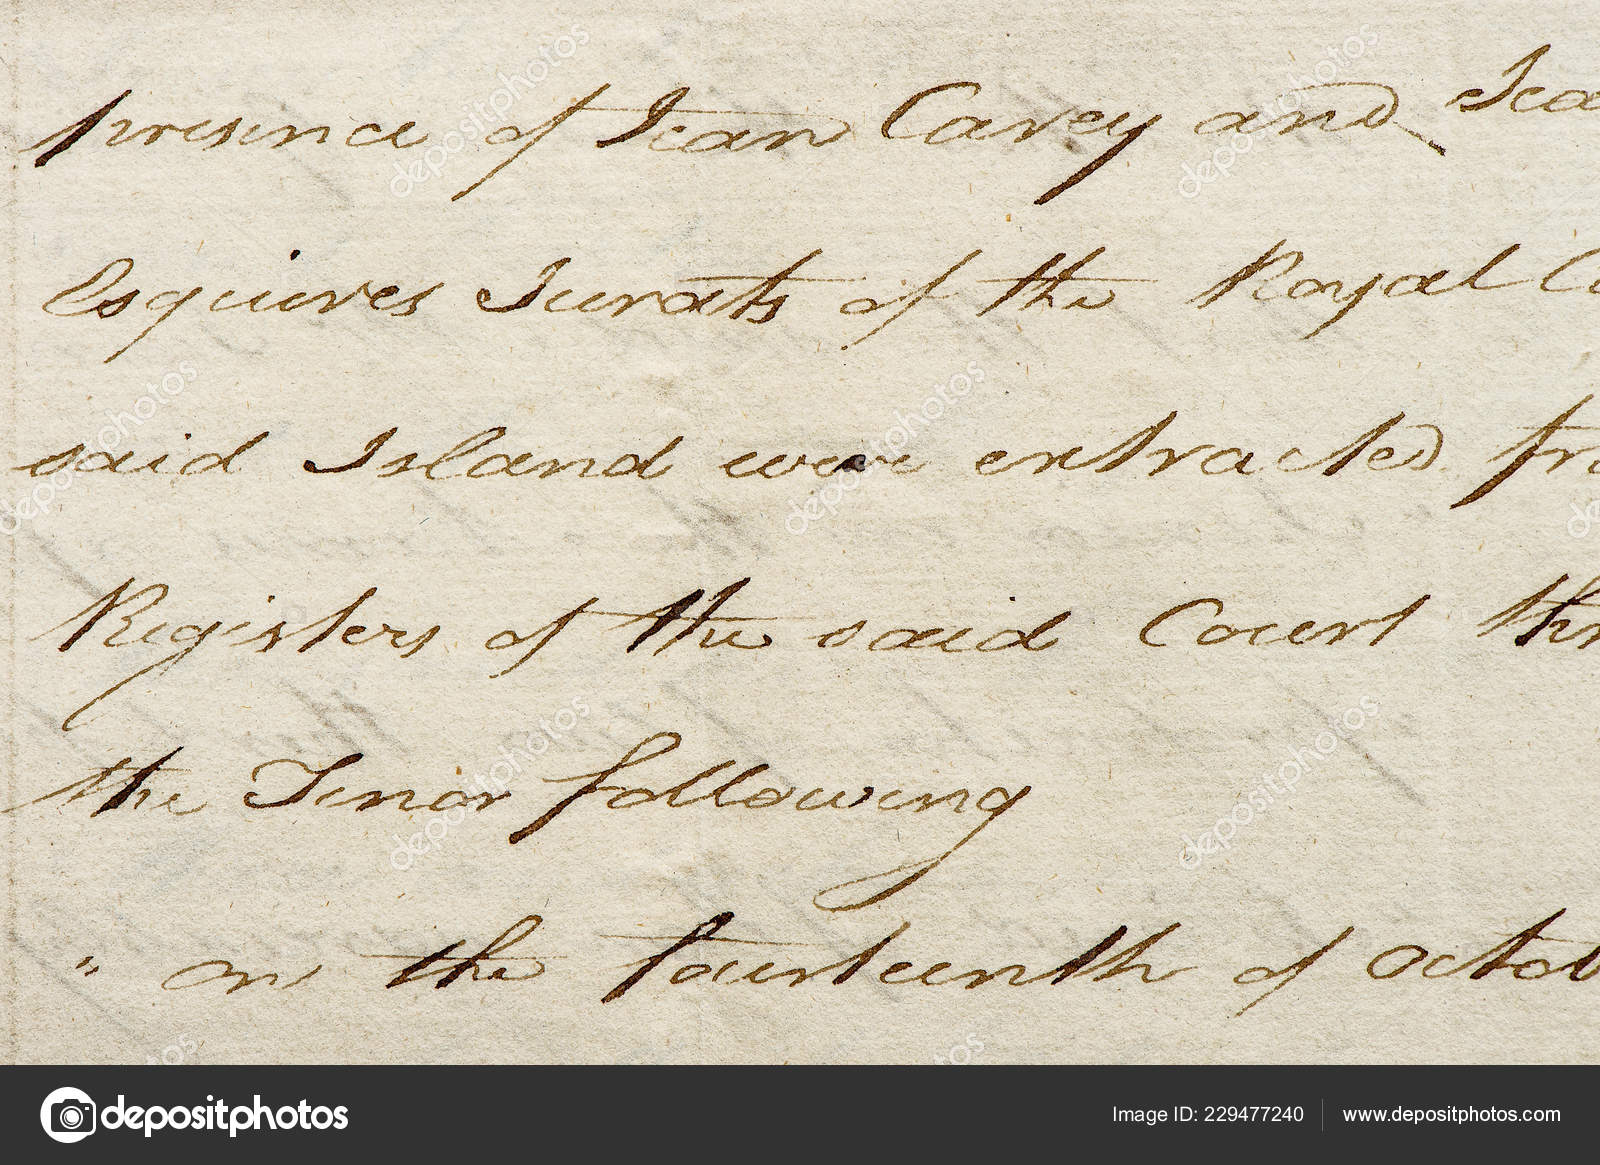 presence of Jean Carey and Jea
Esquires Jurats of the Royal Co
said Island were extracted fro
Registers of the said Court thr
the Tenor following
" on the fourteenth of Octob
depositphotos
Image ID: 229477240 www.depositphotos.com